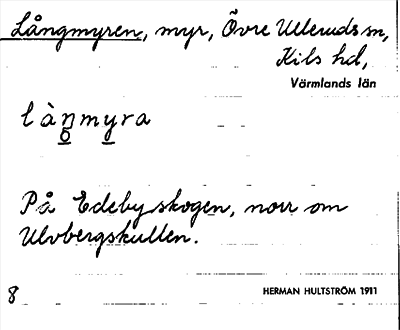 Långmyren, myr, Övre Ulleruds sn,
Kils hd,
Värmlands län
làn̥my̠ra
På Edebyskogen, norr om
Ulvbergskullen.
8
HERMAN HULTSTRÖM 1911